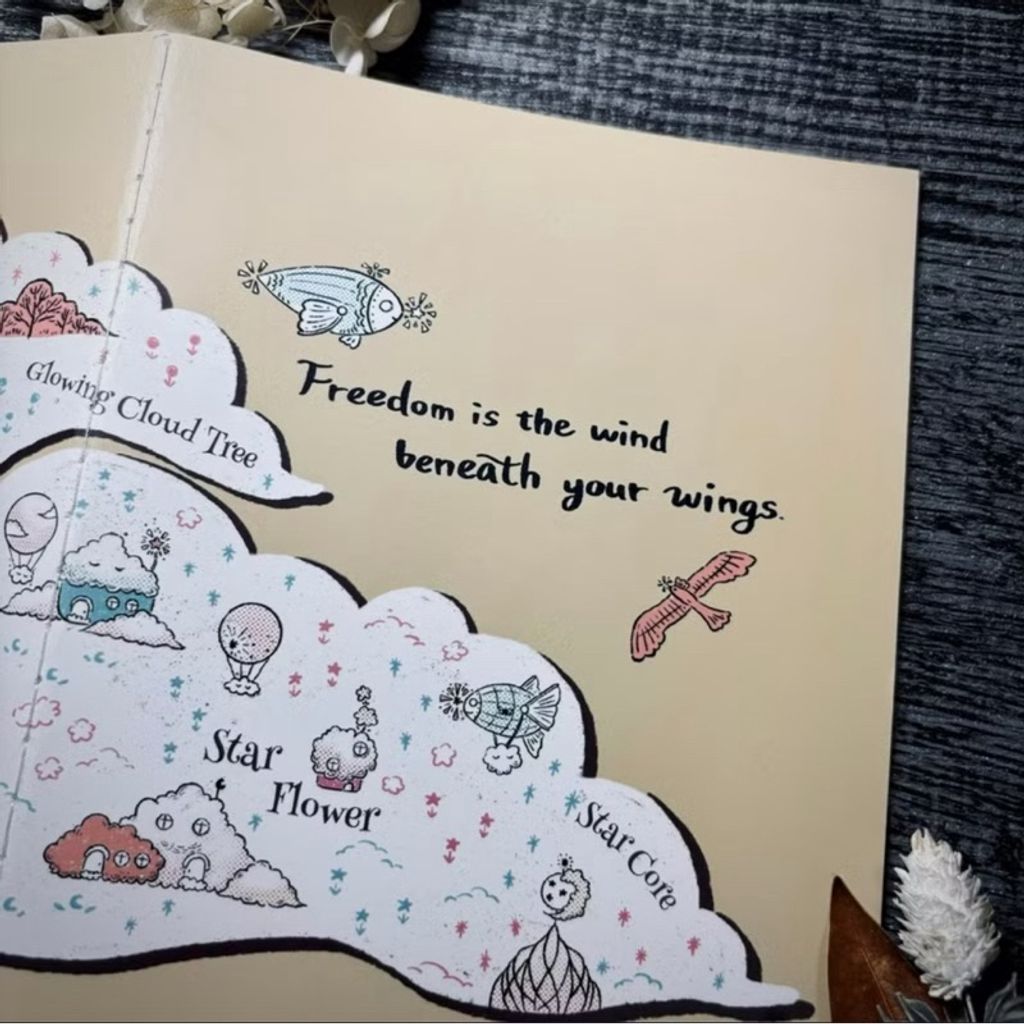 Glowing Cloud Tree
Freedom is the wind
beneath your wings.
Star
Flower
Star Core